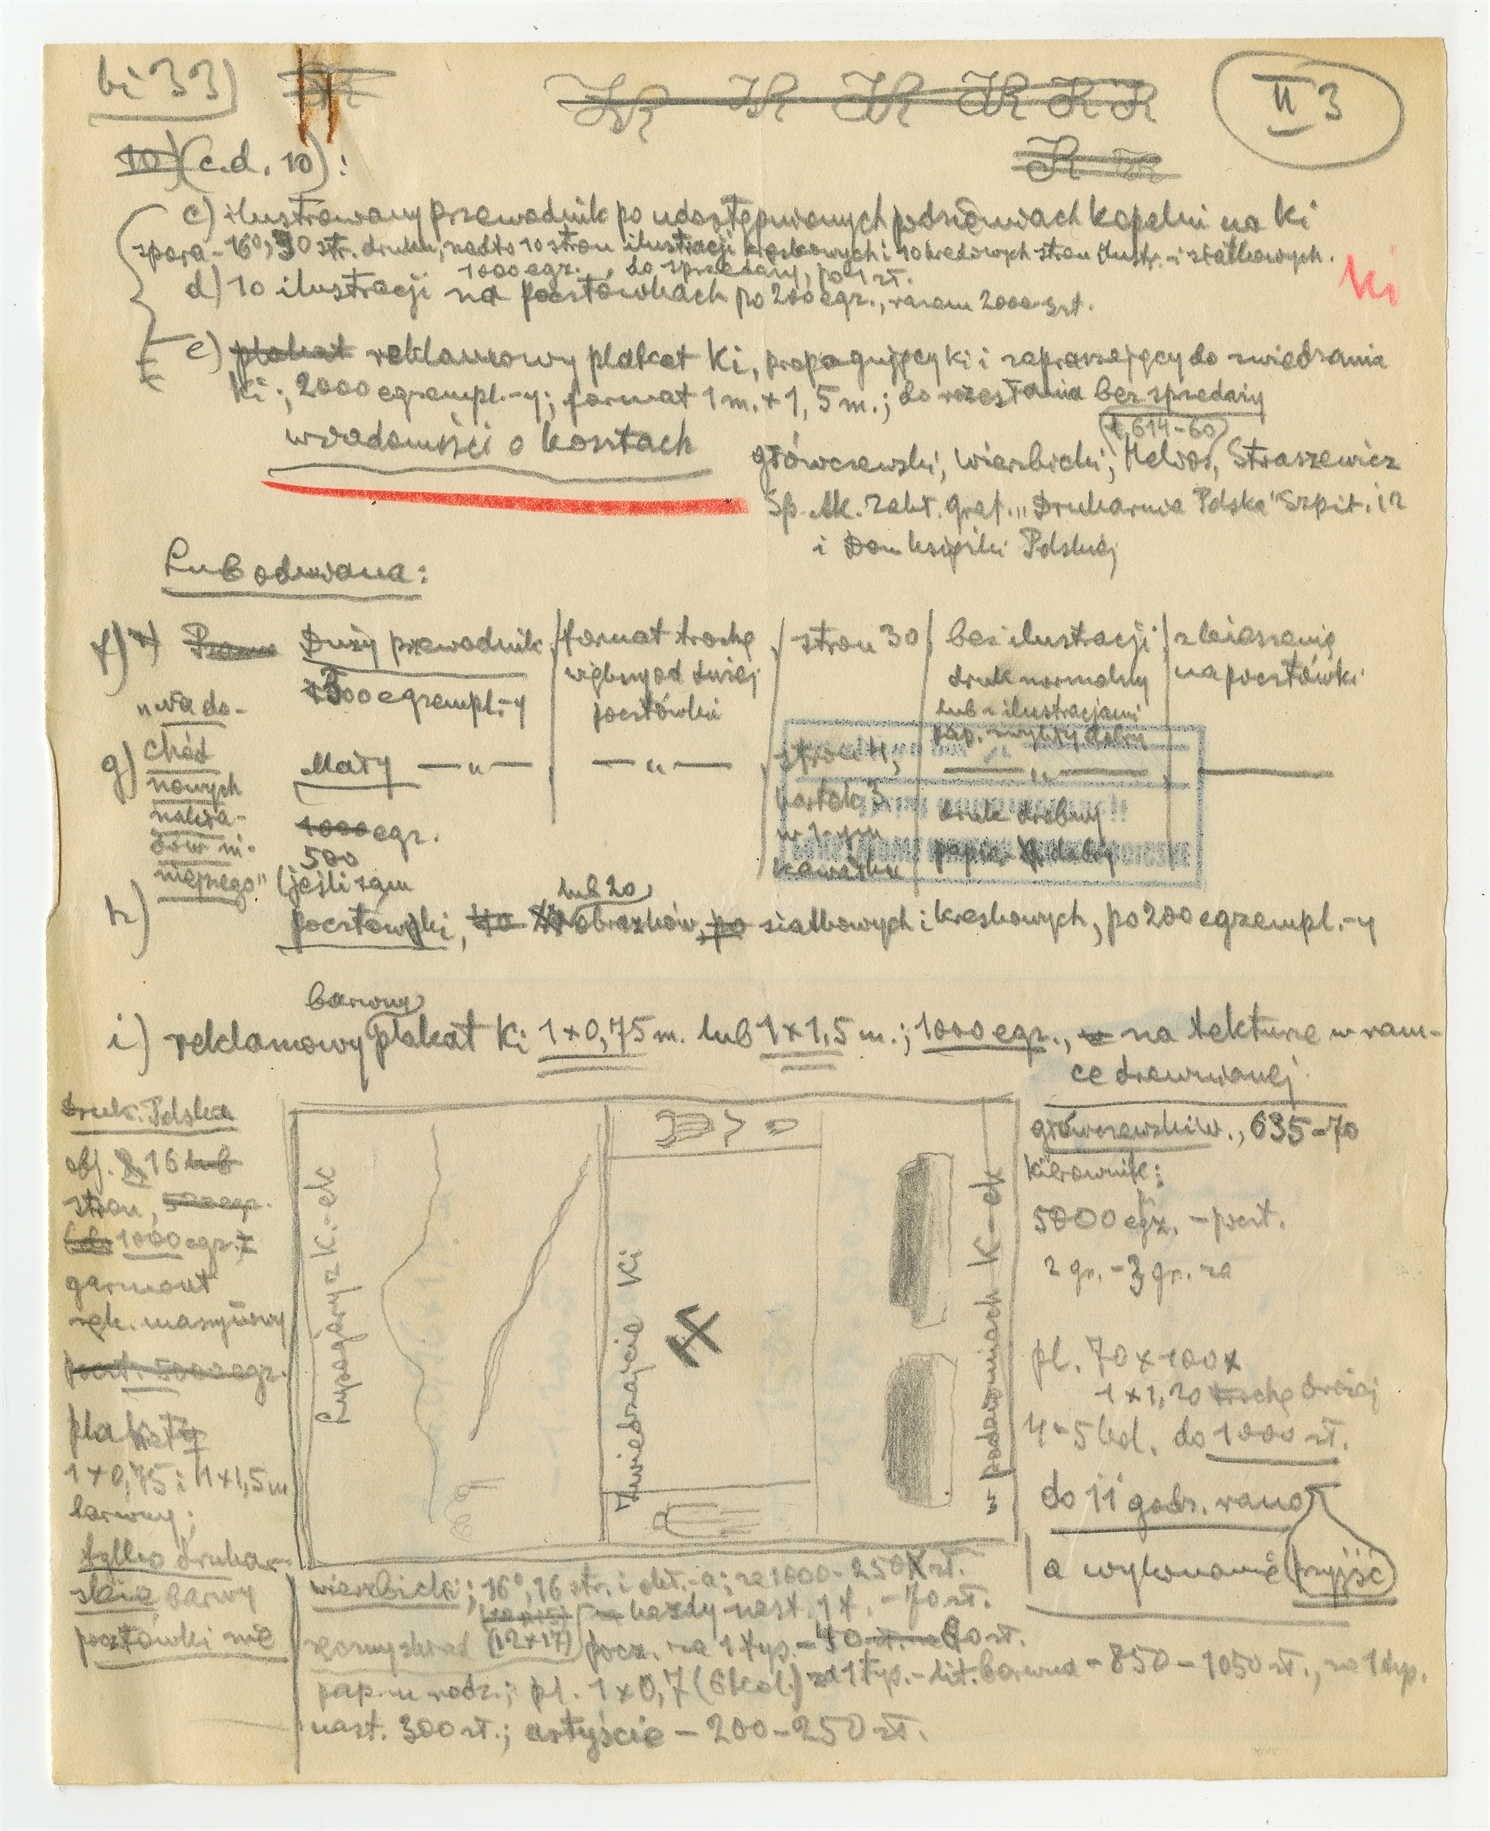 bi 33)
II 3
10) (c.d. 10):
c) ilustrowany przewodnik po udostępnionych podziemiach kopalni na Ki
spora - 16°, 30 str. druku, nadto 10 stron ilustracji kreskowych i 10 kredowych stron ilustr. siatkowych.
1000 egz., do sprzedaży, po 1 zł.
Ki
d) 10 ilustracji na pocztówkach po 200 egz., razem 2000 szt.
e) plakat reklamowy plakat Ki, propagujący Ki i zapraszający do zwiedzania
Ki; 2000 egzempl.-y; format 1 m. x 1,5 m.; do rozesłania bez sprzedaży
wiadomości o kosztach
614-60
Główczewski, Wierzbicki, Helios, Straszewicz
Sp. Ak. Zakł. graf. „Drukarnia Polska" Szpit. 12
i Dom książki Polskiej
Lub odmiana:
f) Duży przewodnik
format trochę
stron 30
bez ilustracji
z
na pocztówki
większy od dużej
pocztówki
druk normalny
lub z ilustracjami
300 egzempl.-y
„na do-
chód
nowych
nakła-
dów ni-
niejszego"
g) Mały — „ —
— „ —
stron 4;
kartek 3
w 1-ym
kawałku
— „ —
druk drobny
papier dobry
1000 egz.
500
(jeśli
h) pocztówki, lub 20 obrazków, po siatkowych i kreskowych, po 200 egzempl.-y
barwny
i) reklamowy plakat Ki 1 x 0,75 m. lub 1 x 1,5 m.; 1000 egz., na tekturze w ram-
ce drewnianej
Druk. Polska
obj. 8, 16 lub
stron,
1000 egz.
garmont
ręk. maszynowy
poczt. 5000 egz.
plakaty
1 x 0,75 i 1 x 1,5 m
barwny;
tylko drukar-
skie barwy
pocztówki nie
Łysogóry z K.-ek
Zwiedzajcie Ki
w podziemiach K-ek
Główczewski W., 635-70
kierownik;
5000 egz. - poczt.
2 gr. - 3 gr. za
pl. 70 x 100 x
1 x 1,20 trochę drożej
4-5 kol. do 1000 zł.
do 11 godz. rano
a wykonanie przyjść
Wierzbicki; 16°, 16 str. i okł.-a; za 1000 - 250 zł.
każdy nast. 1 t. - 70 zł.
(12 x 17) pocz. na 1 typ. - 40 zł. 60 zł.
pap. u rodz.; pl. 1 x 0,7 (6 kol.) za 1 tys. - lit. barwna - 850 - 1050 zł., na 1 typ.
nast. 300 zł.; artyście - 200 - 250 zł.